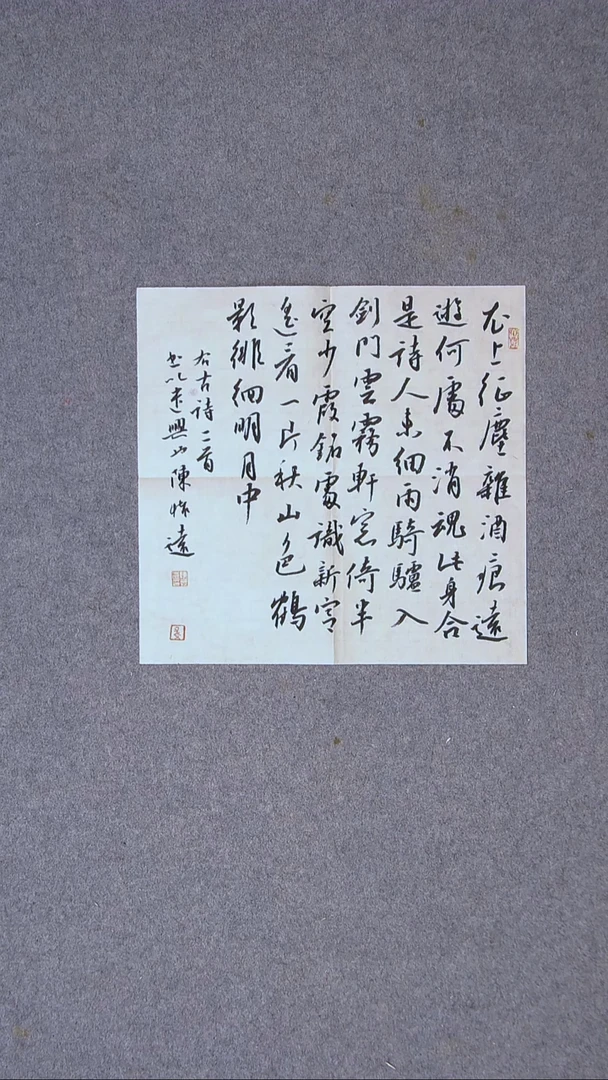 衣上征塵雜酒痕遠
遊何處不消魂此身合
是詩人未細雨騎驢入
劍門雲霧軒窓倚半
空少霞銘處識新宮
遙看一片秋山色鶴
影徘徊明月中
右古詩二首
書以遣興山陳遠